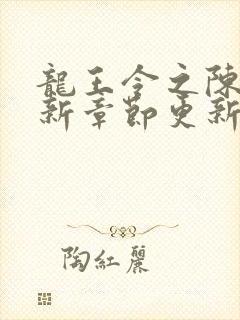 龍王令之陳
新章節更新
陶紅麗